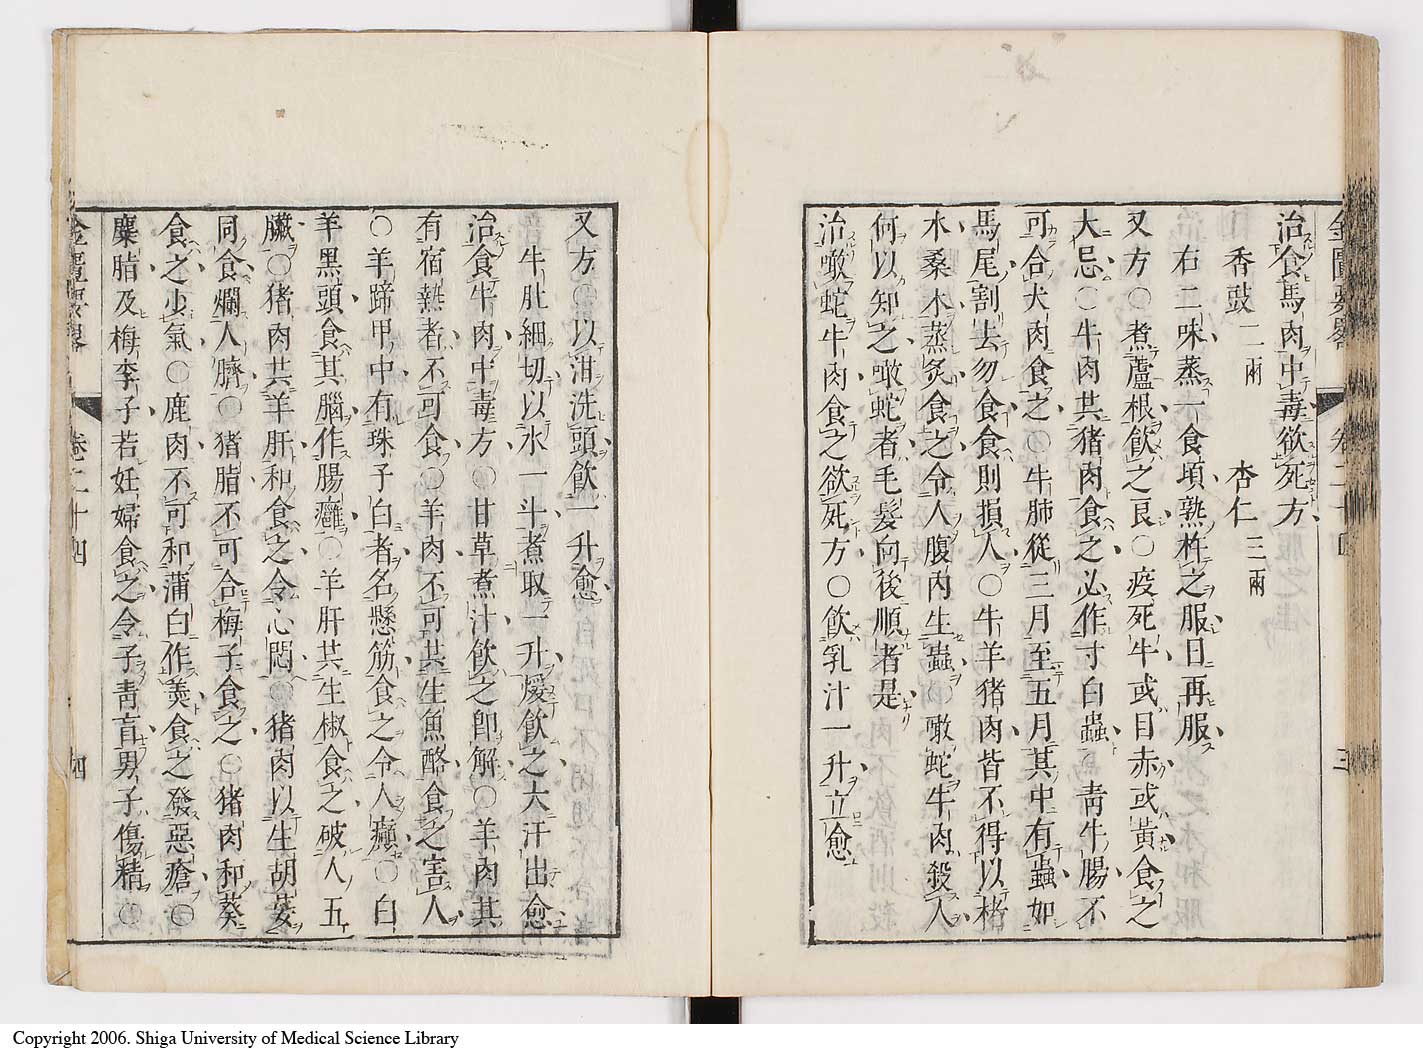 金匱要畧 卷二十四 三
治食馬肉中毒欲死方
香豉二兩 杏仁三兩
右二味蒸一食頃熟杵之服日再服
又方〇煮蘆根飲之良〇疫死牛或目赤或黃食之
大忌〇牛肉共猪肉食之必作寸白蟲青牛腸不
可合犬肉食之〇牛肺從三月至五月其中有蟲如
馬尾割去勿食食則損人〇牛羊猪肉皆不得以楮
木桑木蒸炙食之令人腹內生蟲〇噉蛇牛肉殺人
何以知之噉蛇者毛髮向後順者是
治噉蛇牛肉食之欲死方〇飲乳汁一升立愈
又方〇以泔洗頭飲一升愈
牛肚細切以水一斗煮取一升煖飲之大汗出愈
治食牛肉中毒方〇甘草煮汁飲之即解〇羊肉其
有宿熱者不可食〇羊肉不可共生魚酪食之害人
〇羊蹄甲中有珠子白者名懸筋食之令人癲〇白
羊黑頭食其腦作腸癰〇羊肝共生椒食之破人五
臟〇猪肉共羊肝和食之令心悶〇猪肉以生胡荽
同食爛人臍〇猪脂不可合梅子食之〇猪肉和葵
食之少氣〇鹿肉不可和蒲白作羹食之發惡瘡〇
麋脂及梅李子若妊婦食之令子青盲男子傷精〇
金匱要畧 卷二十四 四
Copyright 2006. Shiga University of Medical Science Library